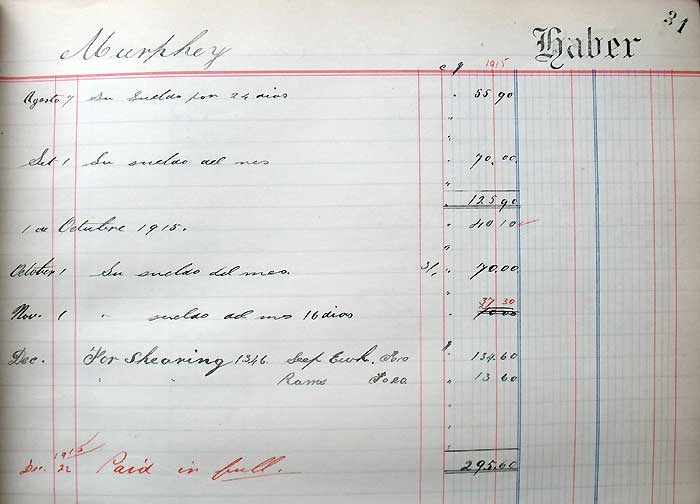 31
Murphey Haber
c q 1915
Agosto 7 Su Sueldo por 24 dias " 55 90
"
"
Set 1 Su sueldo del mes " 70.00
"
" 125 90
1 de Octubre 1915. " 40 10
"
October 1 Su sueldo del mes. " 70.00
" 37 30
Nov. 1 " sueldo del mes 16 dias " 70 00
Dec. For Shearing 1346. " 134.60
" " Rams " 13 60
"
"
"
1915
Dec. 22 Paid in full. 295.60